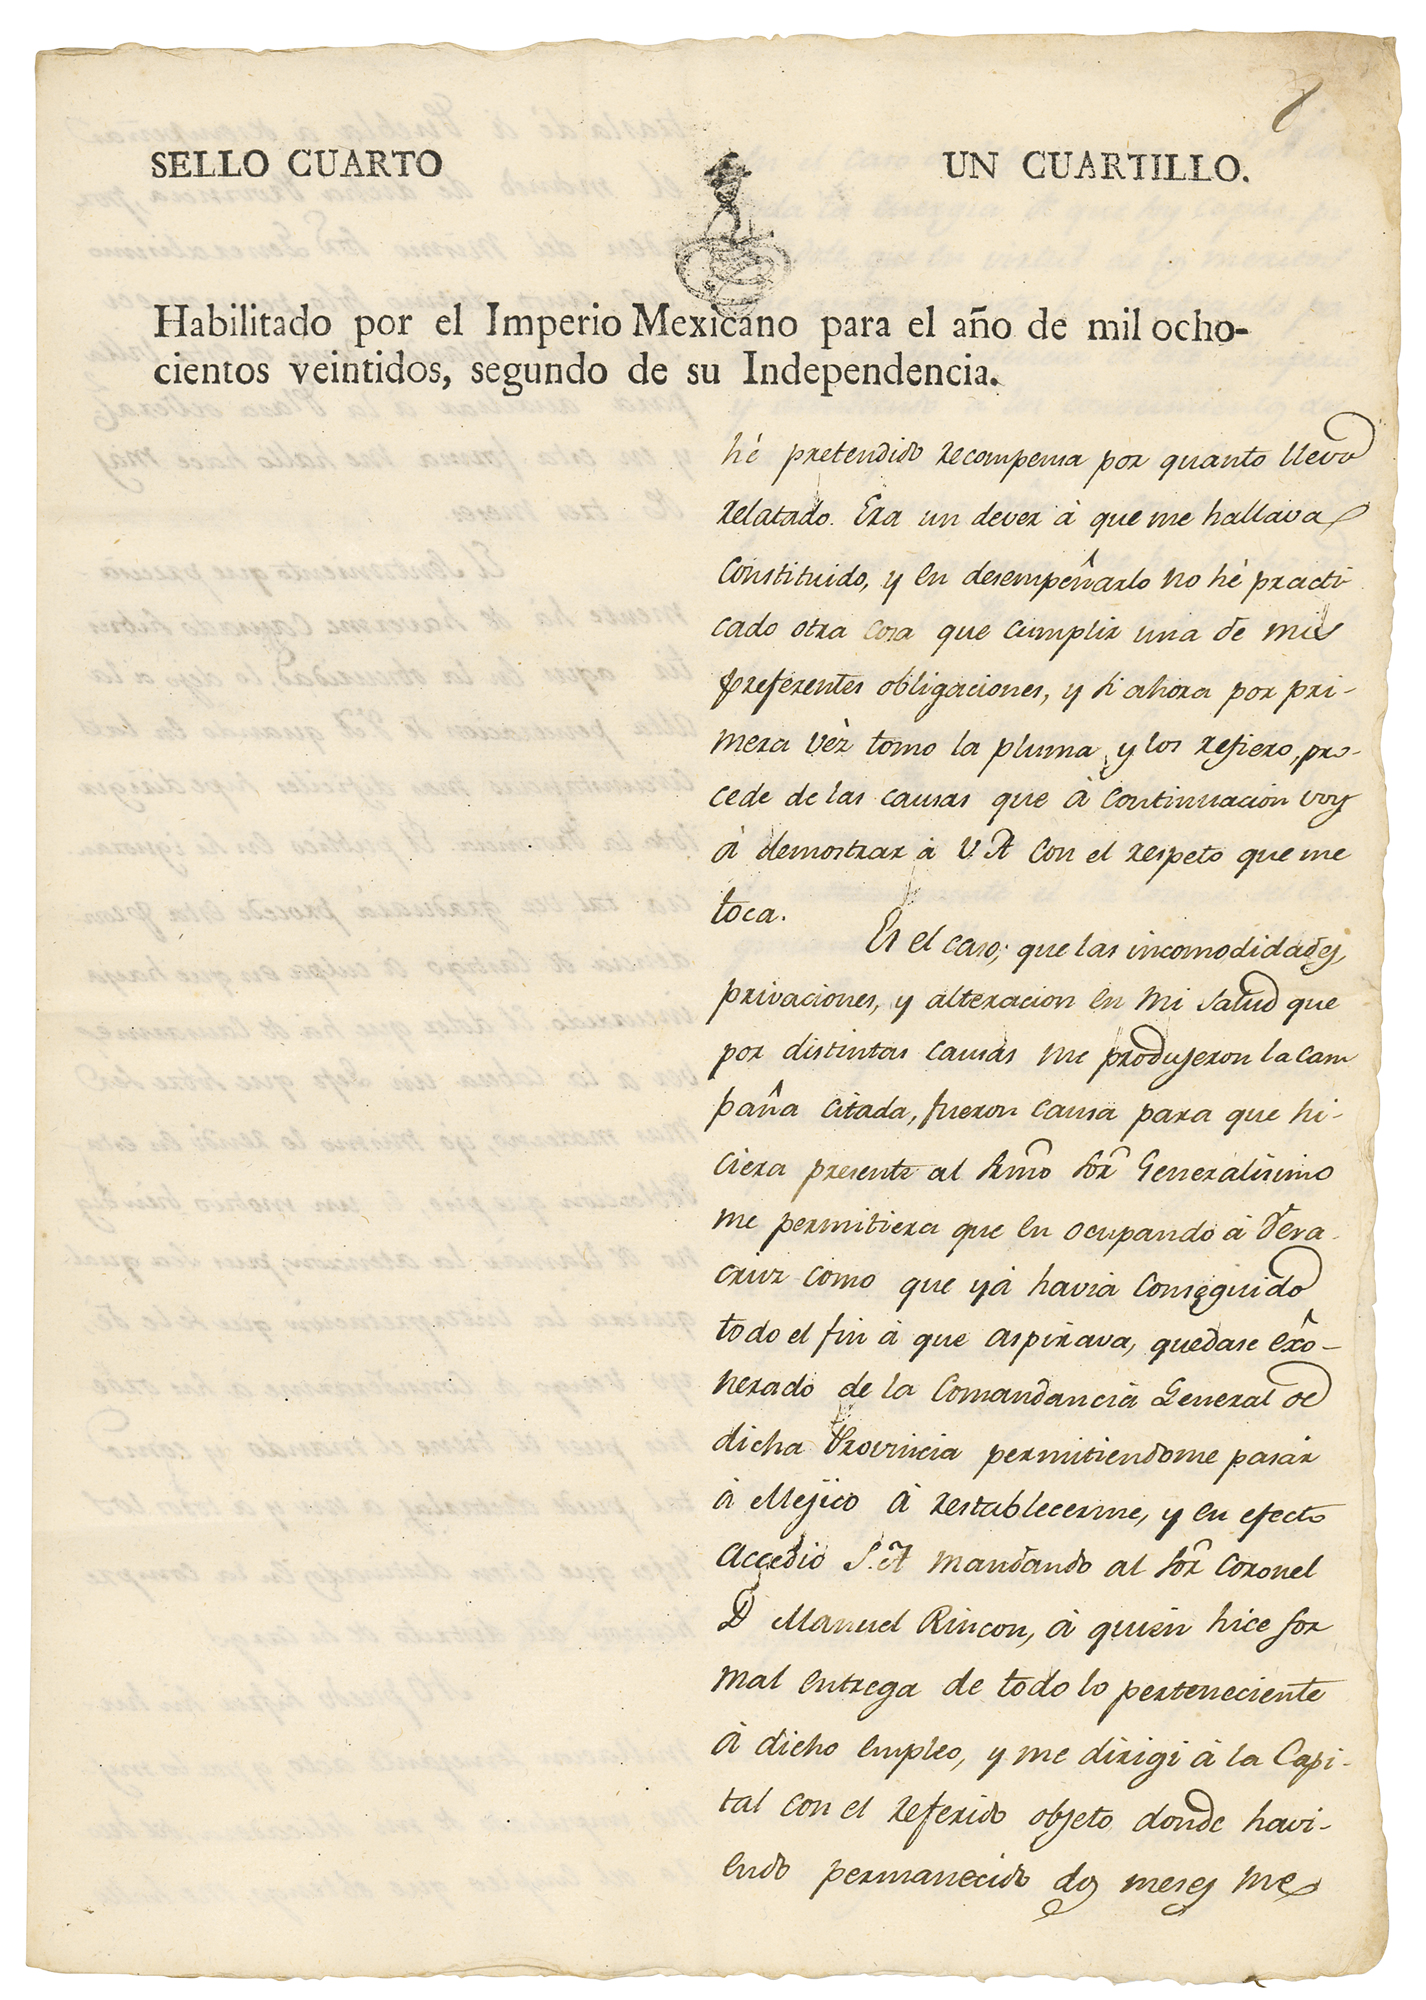 SELLO CUARTO UN CUARTILLO.
Habilitado por el Imperio Mexicano para el año de mil ocho-
cientos veintidos, segundo de su Independencia.
hé pretendido recompensa por quanto llevo
relatado. Era un dever à que me hallava
Constituido, y en desempeñarlo no hé practi
cado otra cosa que cumplir una de mis
preferentes obligaciones, y si ahora por pri-
mera vèz tomo la pluma, y los refiero, pro-
cede de las causas que à continuacion voy
à demostrar à V.A con el respeto que me
toca.
Es el caso; que las incomodidades,
privaciones, y alteracion en mi salud que
por distintas causas me produjeron la cam
paña citada, fueron causa para que hi-
ciera presente al Srmo Sor Generalisimo
me permitiera que en ocupando à Vera-
cruz como que yà havia conseguido
todo el fin à que aspirava, quedase exô-
nerado de la Comandancia General de
dicha Provincia permitiendome pasàr
à Mejico à restablecerme, y en efecto
accedio S.A mandando al Sor Coronel
D Manuel Rincon, à quien hice for
mal entrega de todo lo perteneciente
à dicho empleo, y me dirigi à la Capi-
tal con el referido objeto donde havi-
endo permanecido dos meses me